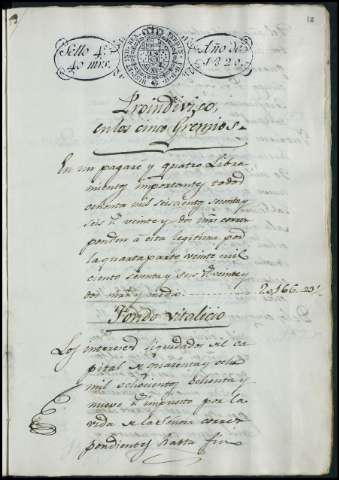 12
Sello 4.º
40 mrs.
Año de
1820.
Proindiviso,
en los cinco Gremios.
En un pagaré y quatro Libra
mientos importantes todos
ochenta mil seiscientos sesenta y
seis r.s veinte y dos mrs corres
ponden á esta legitima por
la quarta parte veinte mil
ciento sesenta y seis r.s veinte y
dos mrs y medio
20,166..22½
Fondo vitalicio
Los intereses liquidados del ca
pital de quarenta y ocho
mil ochocientos ochenta y
nueve r.s impuesto por la
vida de la Señora corres
pondientes hasta fin